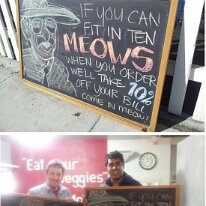 IF YOU CAN
FIT IN TEN
MEOWS
WHEN YOU ORDER
WE'LL TAKE 10%
OFF YOUR BILL
COME IN MEOW!
"Eat
veggies"
IF YOU CAN